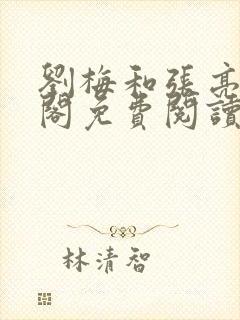 劉梅和張亮
閣免費閱讀
林清智